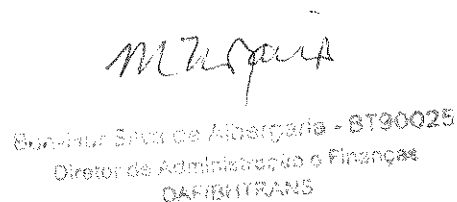 Silva de Albergaria - BT90025
Diretor de Administração e Finanças
DAF/BHTRANS